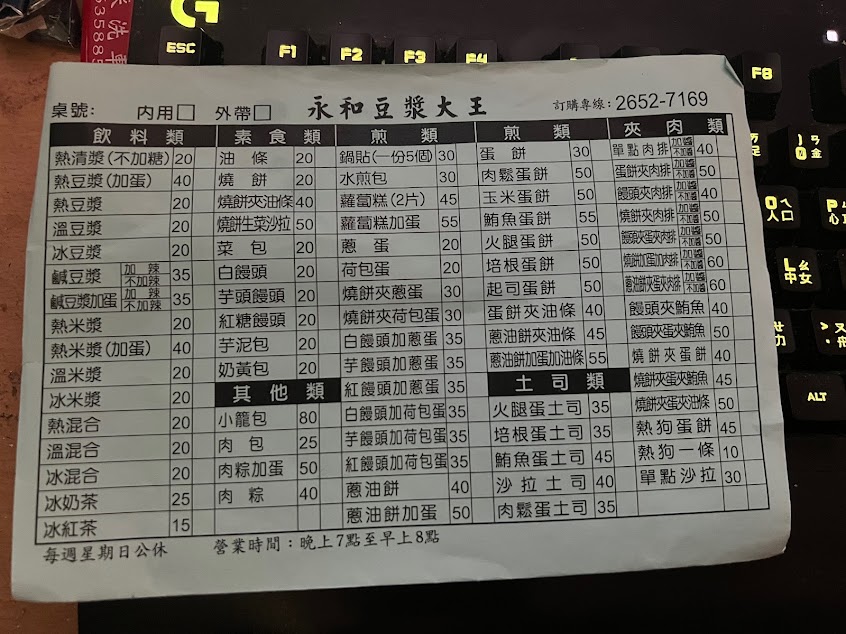 洗
635885
G
ESC F1 F2 F3 F4 F8
桌號: 內用□ 外帶□ 永和豆漿大王 訂購專線:2652-7169
飲料類
熱清漿(不加糖) 20
熱豆漿(加蛋) 40
熱豆漿 20
溫豆漿 20
冰豆漿 20
鹹豆漿 加辣 不加辣 35
鹹豆漿加蛋 加辣 不加辣 35
熱米漿 20
熱米漿(加蛋) 40
溫米漿 20
冰米漿 20
熱混合 20
溫混合 20
冰混合 20
冰奶茶 25
冰紅茶 15
素食類
油條 20
燒餅 20
燒餅夾油條 40
燒餅生菜沙拉 50
菜包 20
白饅頭 20
芋頭饅頭 20
紅糖饅頭 20
芋泥包 20
奶黃包 20
其他類
小籠包 80
肉包 25
肉粽加蛋 50
肉粽 40
煎類
鍋貼(一份5個) 30
水煎包 30
蘿蔔糕(2片) 45
蘿蔔糕加蛋 55
蔥蛋 20
荷包蛋 20
燒餅夾蔥蛋 30
燒餅夾荷包蛋 30
白饅頭加蔥蛋 35
芋饅頭加蔥蛋 35
紅饅頭加蔥蛋 35
白饅頭加荷包蛋 35
芋饅頭加荷包蛋 35
紅饅頭加荷包蛋 35
蔥油餅 40
蔥油餅加蛋 50
煎類
蛋餅 30
肉鬆蛋餅 50
玉米蛋餅 50
鮪魚蛋餅 55
火腿蛋餅 50
培根蛋餅 50
起司蛋餅 50
蛋餅夾油條 40
蔥油餅夾油條 45
蔥油餅加蛋加油條 55
土司類
火腿蛋土司 35
培根蛋土司 35
鮪魚蛋土司 45
沙拉土司 40
肉鬆蛋土司 35
夾肉類
單點肉排 加醬 不加醬 40
蛋餅夾肉排 加醬 不加醬 50
饅頭夾肉排 加醬 不加醬 40
燒餅夾肉排 加醬 不加醬 50
饅頭夾蛋夾肉排 加醬 不加醬 50
燒餅加蛋加肉排 加醬 不加醬 60
蔥油餅夾蛋夾肉排 加醬 不加醬 60
饅頭夾鮪魚 40
饅頭夾蛋夾鮪魚 50
燒餅夾蛋餅 40
燒餅夾蛋夾鮪魚 45
燒餅夾蛋夾油條 50
熱狗蛋餅 45
熱狗一條 10
單點沙拉 30
每週星期日公休 營業時間:晚上7點至早上8點
) ㄢ
0 金
O ㄟ
人 口
P
心
L ㄠ
中 女
力
> ㄡ
ALT